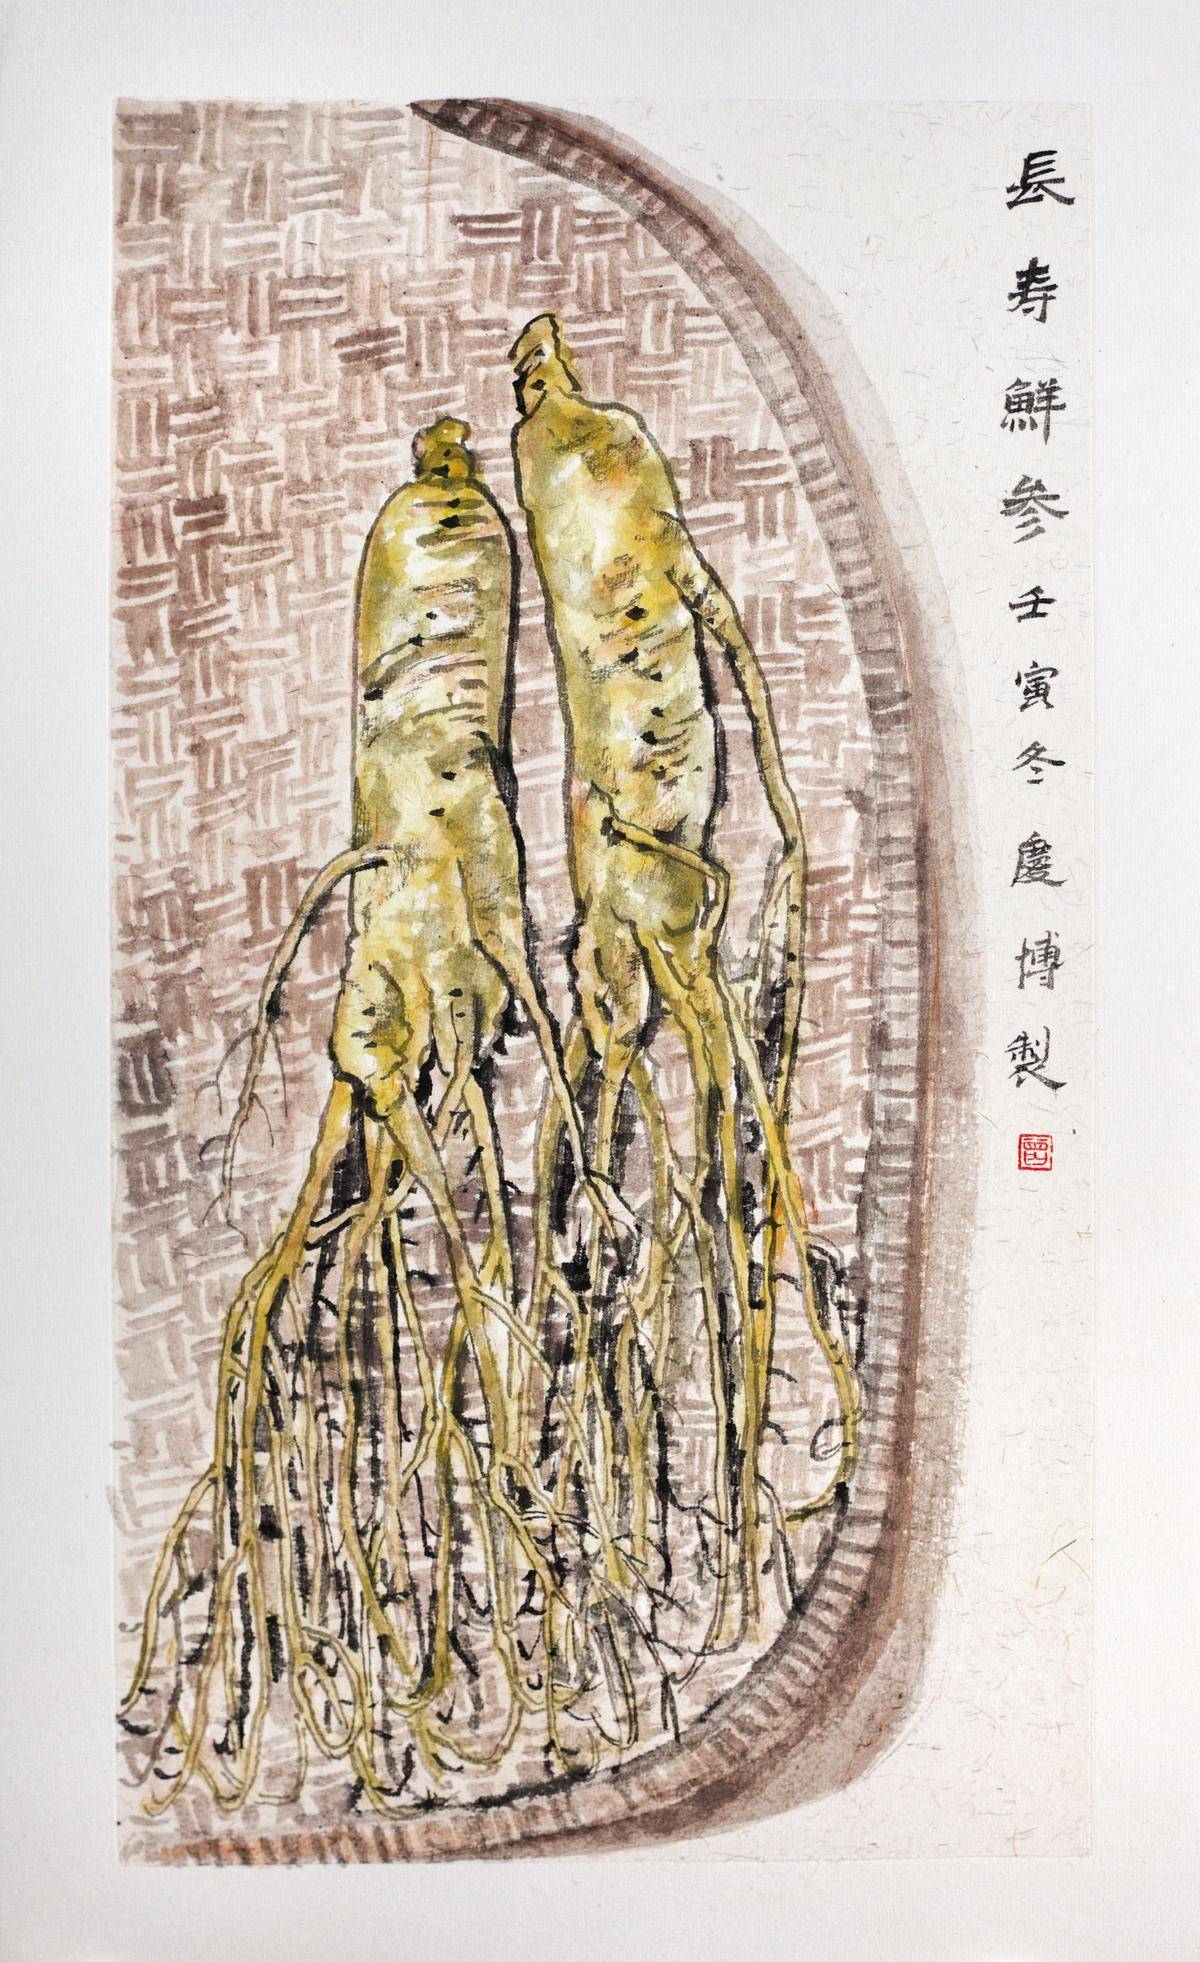 長寿鮮参壬寅冬慶博製